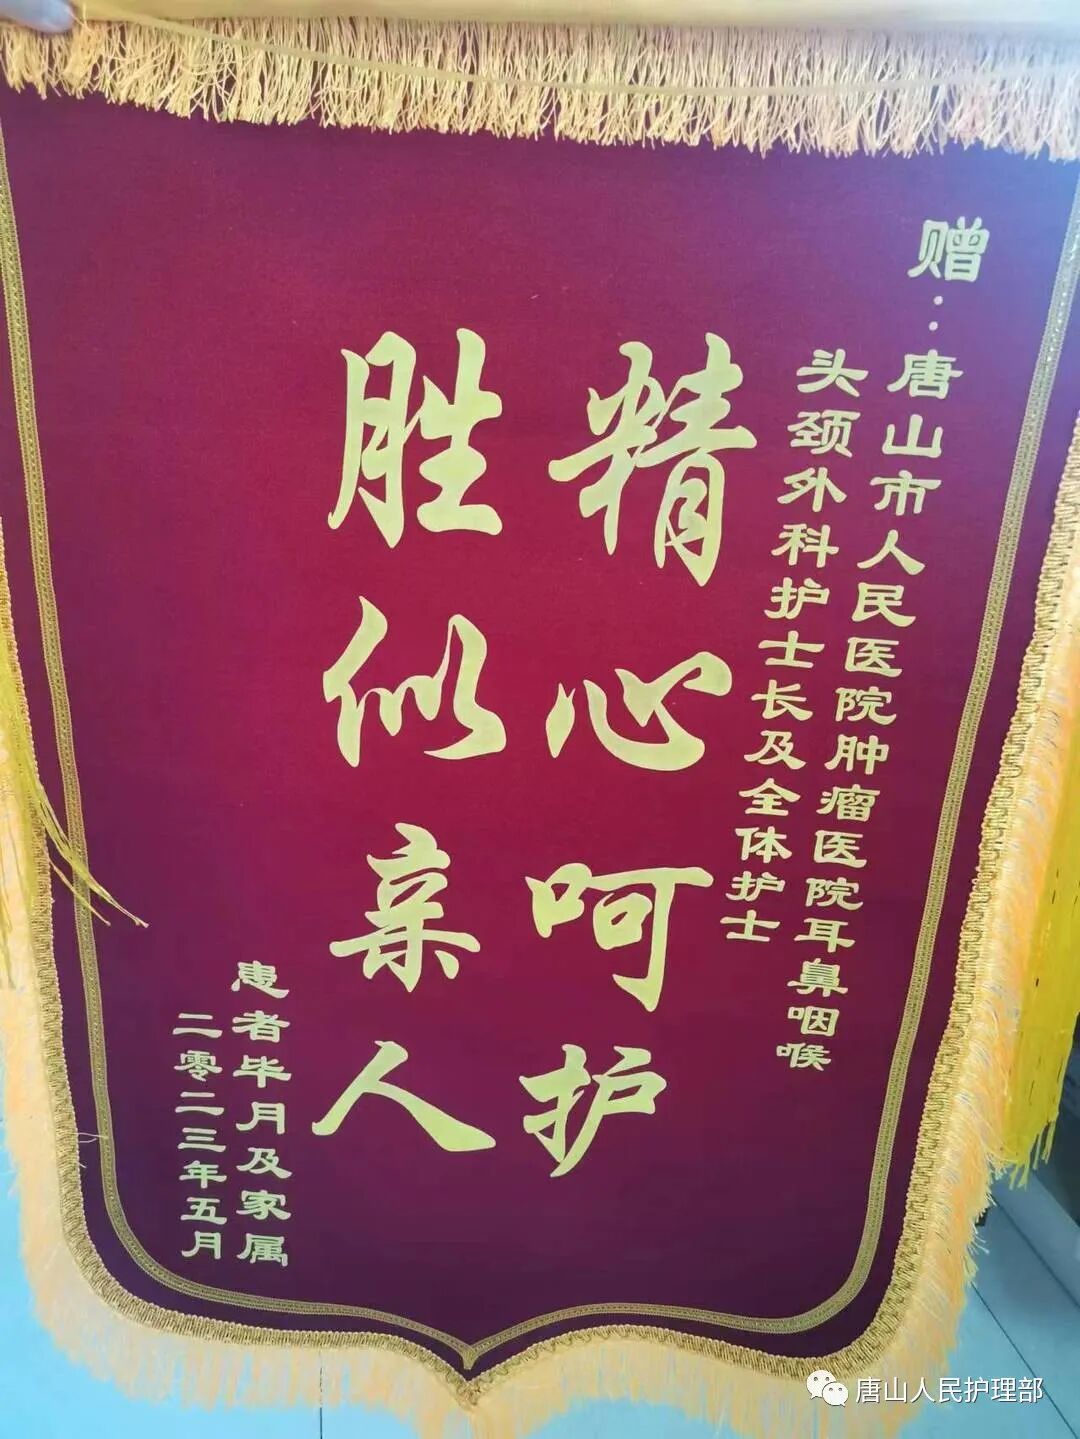 赠：唐山市人民医院肿瘤医院耳鼻咽喉
头颈外科护士长及全体护士
精心呵护
胜似亲人
患者毕月及家属
二零二三年五月
唐山人民护理部